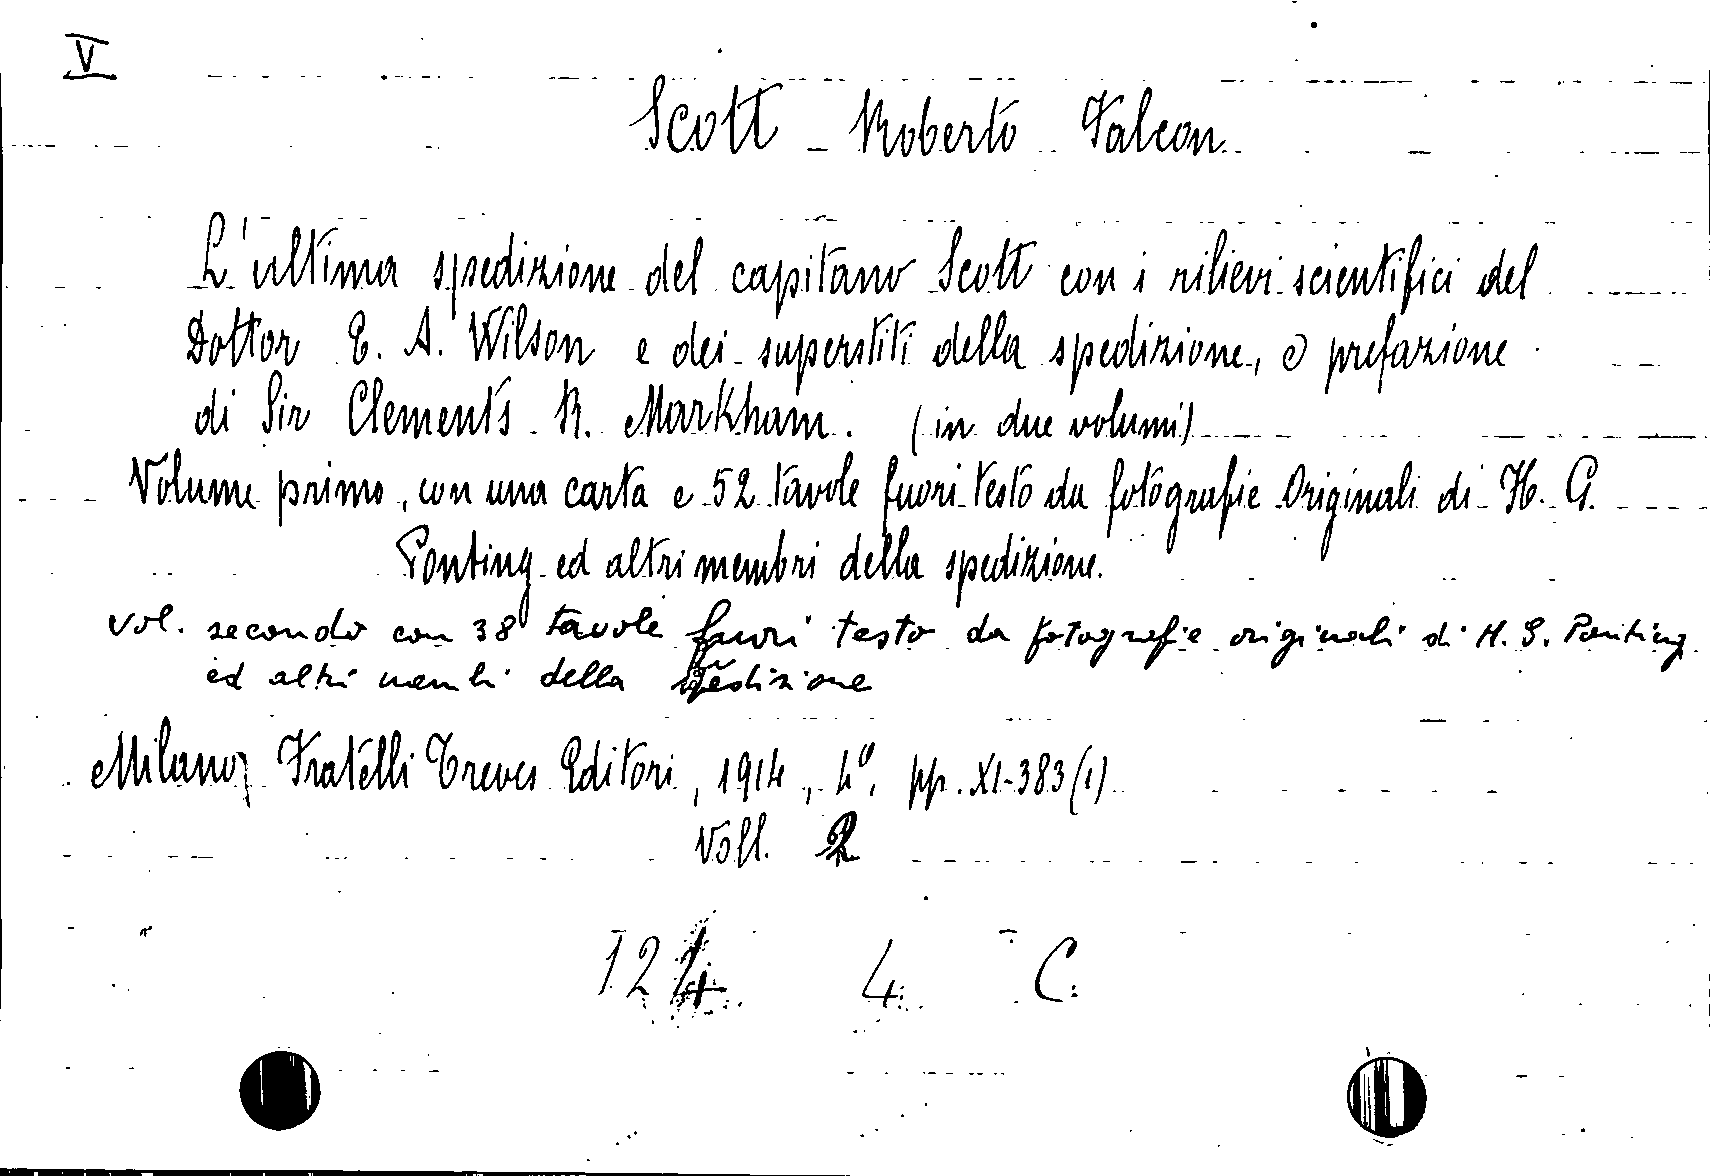 V
Scott - Roberto Falcon
L'ultima spedizione del capitano Scott con i rilievi scientifici del
Dottor E. A. Wilson e dei superstiti della spedizione, e prefazione
di Sir Clements R. Markham. (in due volumi)
Volume primo, con una carta e 52 tavole fuori testo da fotografie originali di H. G.
Ponting ed altri membri della spedizione.
Vol. secondo con 38 tavole fuori testo da fotografie originali di H. G. Ponting
ed altri membri della spedizione
Milano, Fratelli Treves Editori, 1914, 4°. pp. XI-383 (1)
Voll. 2
124 4 C.